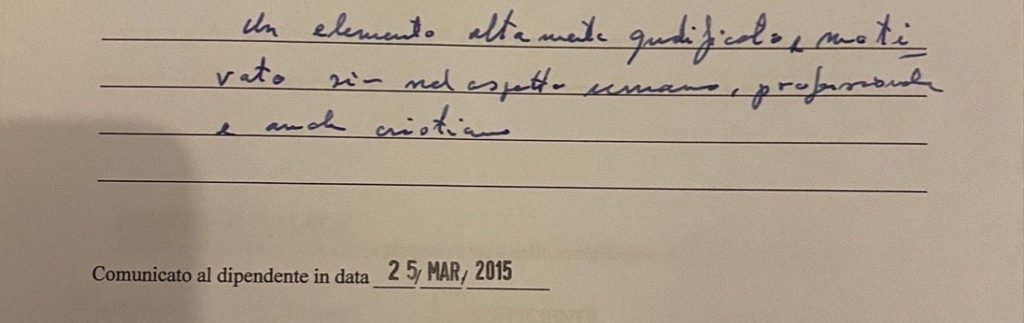 Un elemento altamente qualificato, moti
vato sia nel aspetto umano, professionale
e anche cristiano
Comunicato al dipendente in data 25/ MAR/ 2015